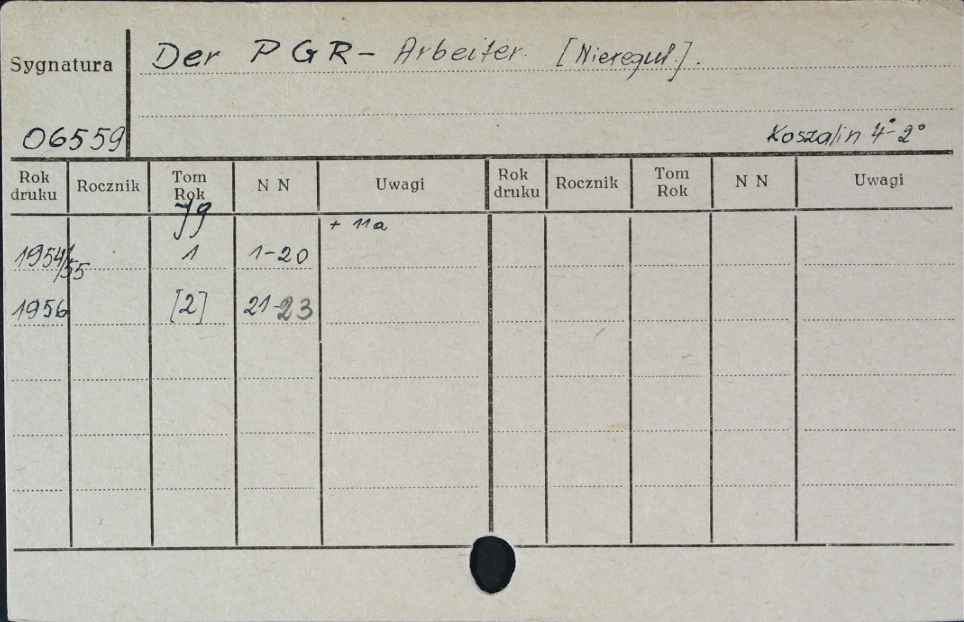 Sygnatura Der PGR- Arbeiter. [Nieregul.].
06559 Koszalin 4°-2°
Rok druku Rocznik Tom Rok N N Uwagi Rok druku Rocznik Tom Rok N N Uwagi
Jg + 11a
1954/55 1 1-20
1956 [2] 21-23